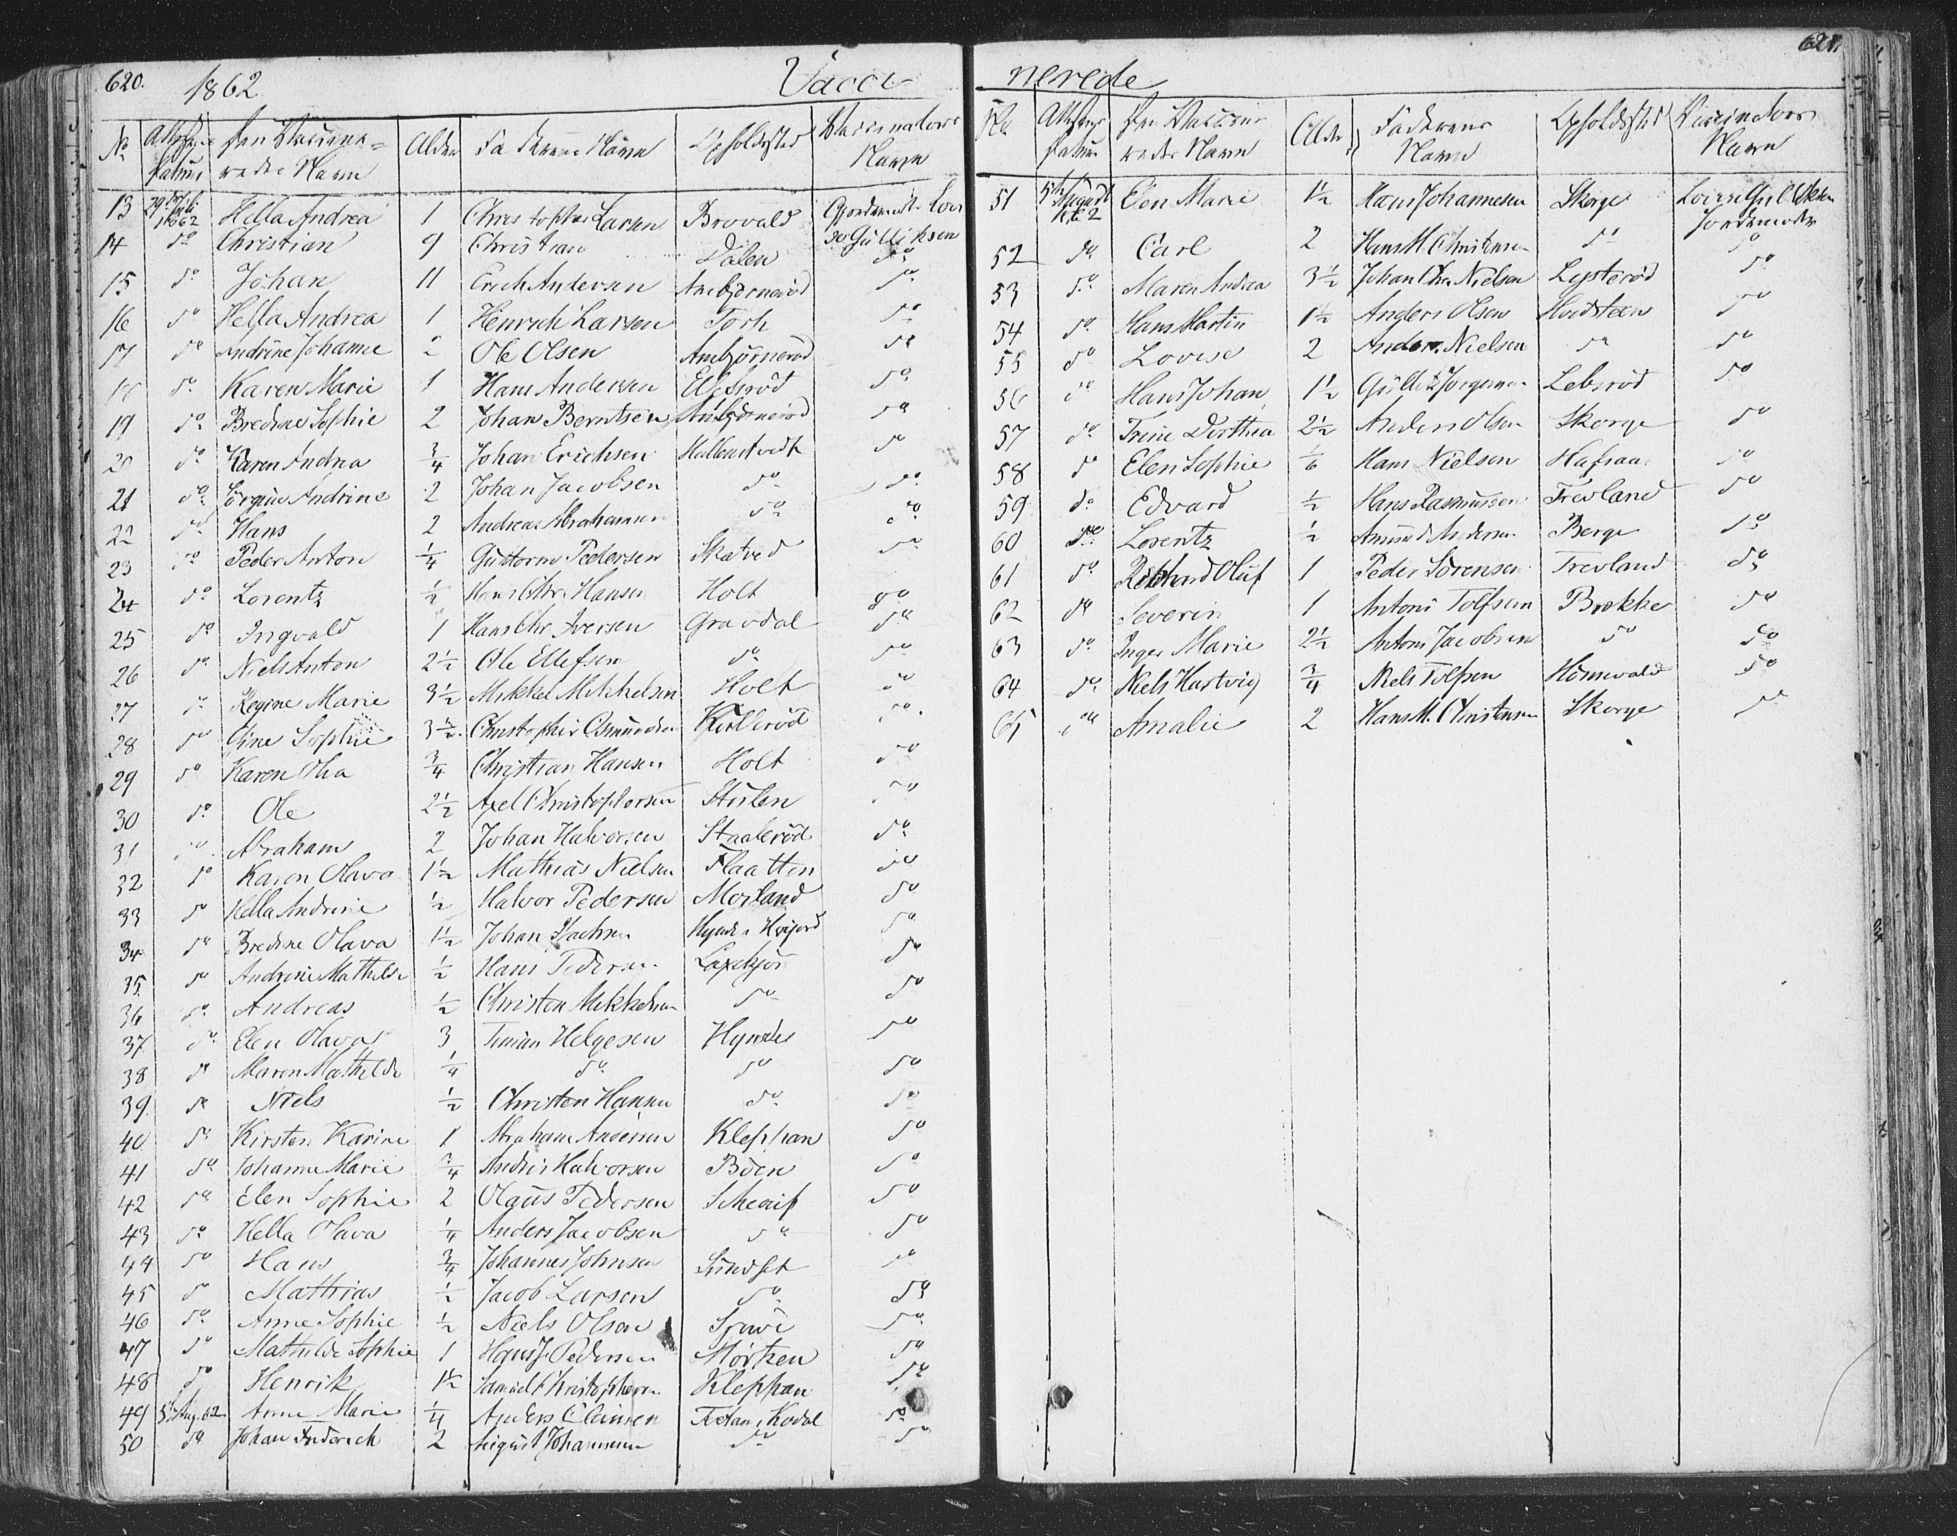 620. 1862 Vacci-
No. Attestens Datum Den Vaccine-redes Navn Alder Faderens Navn Opholdssted Vaccinateurs Navn
13 1862 Hella Andrea 1 Christopher Larsen Brovald Gjordemoder Lovi
14 do Christian 9 Christian Dalen se Gullichsen do
15 do Johan 11 Erich Andersen Anebjørnerød do
16 do Hella Andrea 1 Henrich Larsen Torp do
17 do Andrine Johanne 2 Ole Olsen Anebjørnerød do
18 do Karen Marie 1 Hans Andersen Ellefsrød do
19 do Bredine Sophie 2 Johan Berntsen Anebjørnerød do
20 do Karen Andrea 3/4 Johan Erichsen Hallenstvedt do
21 do Jørgine Andrine 2 Johan Jacobsen do do
22 do Hans 2 Andreas Abrahamsen do do
23 do Peder Anton 1/4 Guttorm Pedersen Skatved do
24 do Lorentz 1/2 Hans Chr. Hansen Holt do
25 do Ingvald 1 Hans Chr. Iversen Gravdal do
26 do Niels Anton 2 1/2 Ole Ellefsen do do
27 do Regine Marie 3 1/2 Mikkel Mikkelsen Holt do
28 do Gine Sophie 3 1/2 Christopher Osmundsen do
29 do Karen Olia 3/4 Christian Hansen Holt do
30 do Ole 2 1/2 Axel Christophersen Stulen do
31 do Abraham 2 Johan Halvorsen Staalerød do
32 do Karen Olava 1 1/2 Mathias Nielsen Flaatten do
33 do Hella Andrine 1/2 Halvor Pedersen Moiland do
34 do Bredine Olava 1 1/2 Johan do
35 do Andrine Mathilde 1/2 Hans Pedersen do
36 do Andreas 1/2 Christen Mikkelsen do do
37 do Elen Olava 3 Timian Helgesen Hynnes do
38 do Maren Mathilde 1/4 do do do
39 do Niels 1/2 Christen Hansen do do
40 do Kirsten Karine 1 Abraham Andersen Kleppan do
41 do Johanne Marie 3/4 Anders Halvorsen Böen do
42 do Elen Sophie 2 Olaus Pedersen do
43 do Hella Olava 1/4 Anders Jacobsen do do
44 do Hans 3/4 Johannes Johnsen Sundset do
45 do Mathias 1/2 Jacob Larsen do do
46 do Anne Sophie 1/2 Niels Olsen do
47 do Mathilde Sophie 1 Hans J. Pedersen do
48 do Henrik 1 1/2 Samuel Christophersen Kleppan do
49 5te Aug. 62 Anne Marie 1/4 Anders Kodal do
50 do Johan Frederich 2 August Johannesen do do
nerede 621.
No. Attestens Datum Den Vaccine-redes Navn Alder Faderens Navn Opholdssted Vaccinateurs Navn
51 5te August 1862 Elen Marie 1 1/2 Hans Johannesen Skorge Lovise Gullichsen Jordemoder
52 do Carl 2 Hans M. Christensen do do
53 do Maren Andrea 3 1/2 Johan Chr. Nielsen Lysterød do
54 do Hans Martin 1 1/2 Anders Olsen Hvidsteen do
55 do Lovise 2 Anders Nielsen do do
56 do Hans Johan 1 1/2 Gullik Jørgensen Lebsrød do
57 do Trine Dorthea 2 1/2 Anders Olsen Skorge do
58 do Elen Sophie 1/6 Hans Nielsen Hafsaas do
59 do Edvard 1/2 Hans Rasmussen Trevland do
60 do Lorentz 1/2 Amund Andersen Berge do
61 do Richard Oluf 1 Peder Sörensen Trevland do
62 do Severin 1 Antoni Tolfsen Brekke do
63 do Inger Marie 2 1/2 Antoni Jacobsen do do
64 do Niels Hartvig 3/4 Niels Tolfsen Hörnevald do
65 do Amalie 2 Hans M. Christensen Skorge do